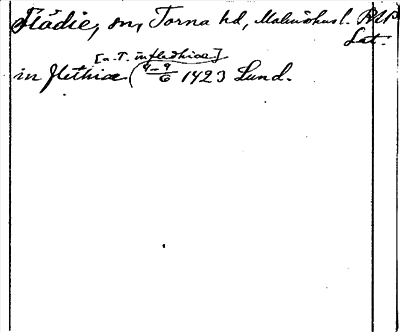 Flädie, sn, Torna hd, Malmöhus l. RAP
Lat.
[a. T. in fledhiæ]
in flethiæ ( 4-9/6 1423 Lund.